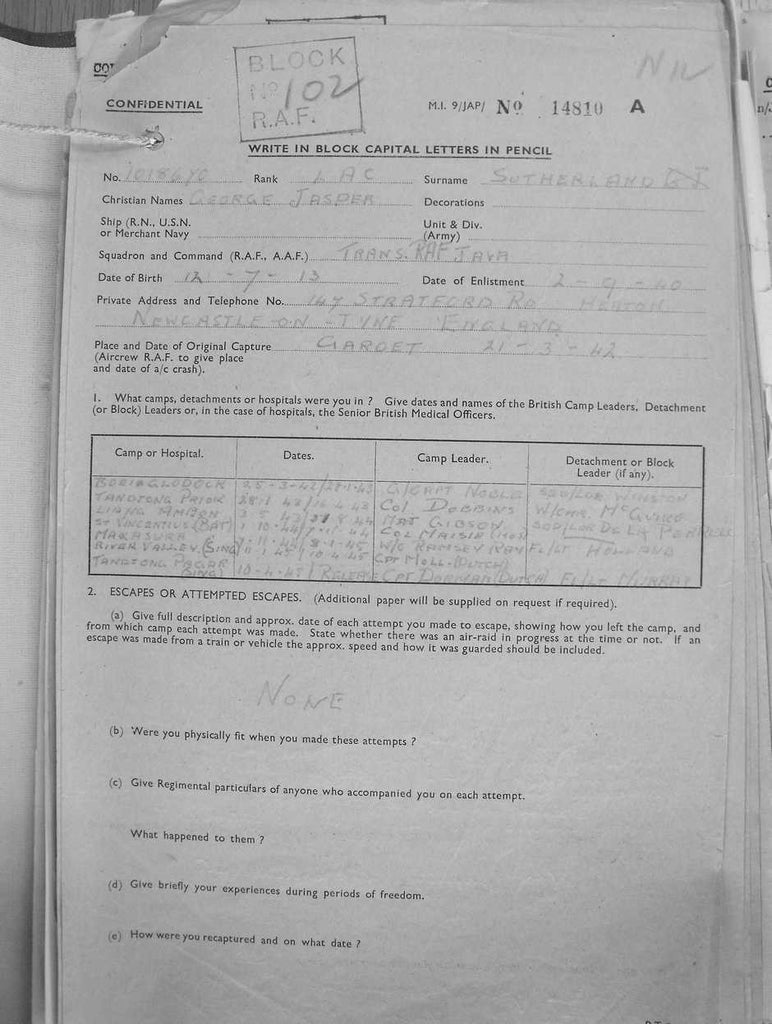 BLOCK
No 102
R.A.F.
NIL
CONFIDENTIAL
M.I. 9/JAP/ No 14810 A
WRITE IN BLOCK CAPITAL LETTERS IN PENCIL
No. Rank LAC Surname SUTHERLAND G J
Christian Names GEORGE JASPER Decorations
Ship (R.N., U.S.N. Unit & Div.
or Merchant Navy (Army)
Squadron and Command (R.A.F., A.A.F.) TRANS. RAF JAVA
Date of Birth 12 - 7 - 13 Date of Enlistment 2 - 9 - 40
Private Address and Telephone No. 147 STRATFORD RD HEATON
NEWCASTLE-ON-TYNE ENGLAND
Place and Date of Original Capture GAROET 21-3-42
(Aircrew R.A.F. to give place
and date of a/c crash).
1. What camps, detachments or hospitals were you in ? Give dates and names of the British Camp Leaders, Detachment
(or Block) Leaders or, in the case of hospitals, the Senior British Medical Officers.
Camp or Hospital. Dates. Camp Leader. Detachment or Block
Leader (if any).
BOEI GLODOCK 25-3-42/ G/CAPT NOBLE SQD/LDR
TANDJONG PRIOK COL
LIANG AMBON MAJ GIBSON
ST VINCENTIUS (BAT)
MAKASURA
RIVER VALLEY (SING) W/C RAMSEY RAY FL/LT HOLLAND
TANDJONG PAGAR CPT MOLL (DUTCH)
(SING) 10-4-45/ RELEASE CPT (DUTCH) FL/LT MURRAY
2. ESCAPES OR ATTEMPTED ESCAPES. (Additional paper will be supplied on request if required).
(a) Give full description and approx. date of each attempt you made to escape, showing how you left the camp, and
from which camp each attempt was made. State whether there was an air-raid in progress at the time or not. If an
escape was made from a train or vehicle the approx. speed and how it was guarded should be included.
NONE
(b) Were you physically fit when you made these attempts ?
(c) Give Regimental particulars of anyone who accompanied you on each attempt.
What happened to them ?
(d) Give briefly your experiences during periods of freedom.
(e) How were you recaptured and on what date ?